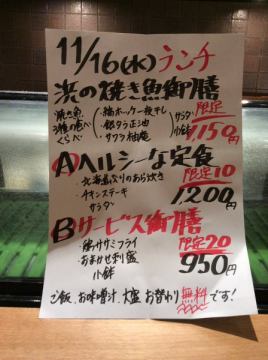 11/16(水)ランチ
浜の焼き魚御膳
焼き魚3種の食べくらべ
・縞ホッケ一夜干し
・銀ダラ正油
・サワラ柚庵
サラダ
小鉢
限定
1150円
Aヘルシーな定食
・北海道ぶりのあら炊き
・チキンステーキ
サラダ
限定10
1200円
Bサービス御膳
・鶏ササミフライ
・おまかせ刺盛
小鉢
限定20
950円
ご飯、お味噌汁、大盛、お替わり無料です!